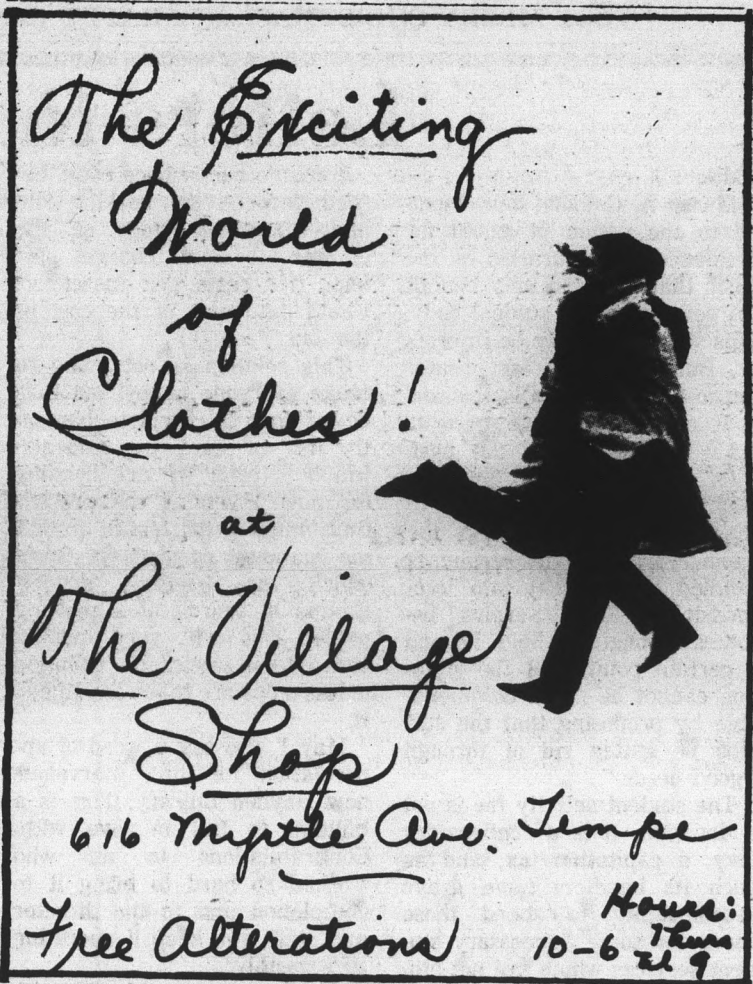 The Exciting
World
of
Clothes!
at
The Village
Shop
616 Myrtle Ave. Tempe
Free Alterations
Hours:
10-6 Thurs
til 9